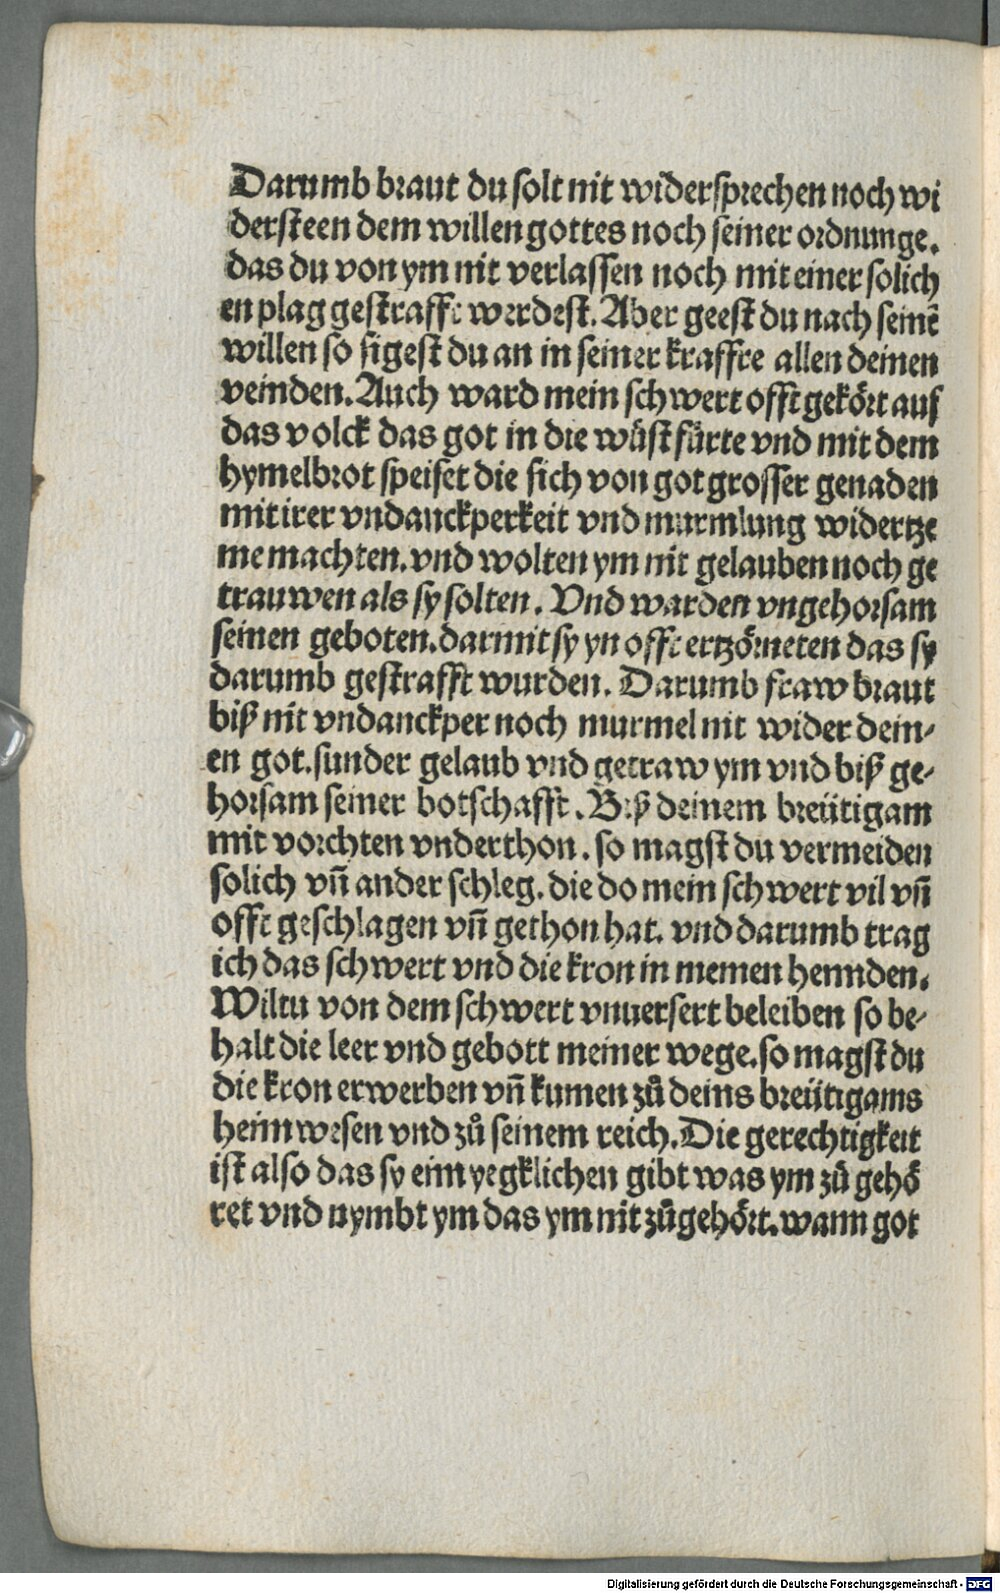 Darumb braut du solt nit widersprechen noch wi
dersteen dem willen gottes noch seiner ordnunge.
das du von ym nit verlassen noch mit einer solich
en plag gestrafft werdest. Aber geest du nach seinē
willen so sigest du an in seiner kraffte allen deinen
veinden. Auch ward mein schwert offt gekört auf
das volck das got in die wüst fürte vnd mit dem
hymelbrot speiset die sich von got grosser genaden
mit irer vndanckperkeit vnd murmlung widertze
me machten. vnd wolten ym nit gelauben noch ge
trauwen als sy solten. Vnd warden vngehorsam
seinen geboten. darmit sy yn offt ertzörneten das sy
darumb gestrafft wurden. Darumb fraw braut
biß nit vndanckper noch murmel nit wider dein⸗
en got. sunder gelaub vnd getraw ym vnd biß ge⸗
horsam seiner botschafft. Biß deinem breütigam
mit vorchten vnderthon. so magst du vermeiden
solich vn̄ ander schleg. die do mein schwert vil vn̄
offt geschlagen vn̄ gethon hat. vnd darumb trag
ich das schwert vnd die kron in meinen hennden.
Wiltu von dem schwert vnuersert beleiben so be⸗
halt die leer vnd gebott meiner wege. so magst du
die kron erwerben vn̄ kumen zů deins breütigams
heimwesen vnd zů seinem reich. Die gerechtigkeit
ist also das sy eim yegklichen gibt was ym zů gehö
ret vnd nymbt ym das ym nit zůgehört. wann got
Digitalisierung gefördert durch die Deutsche Forschungsgemeinschaft - DFG